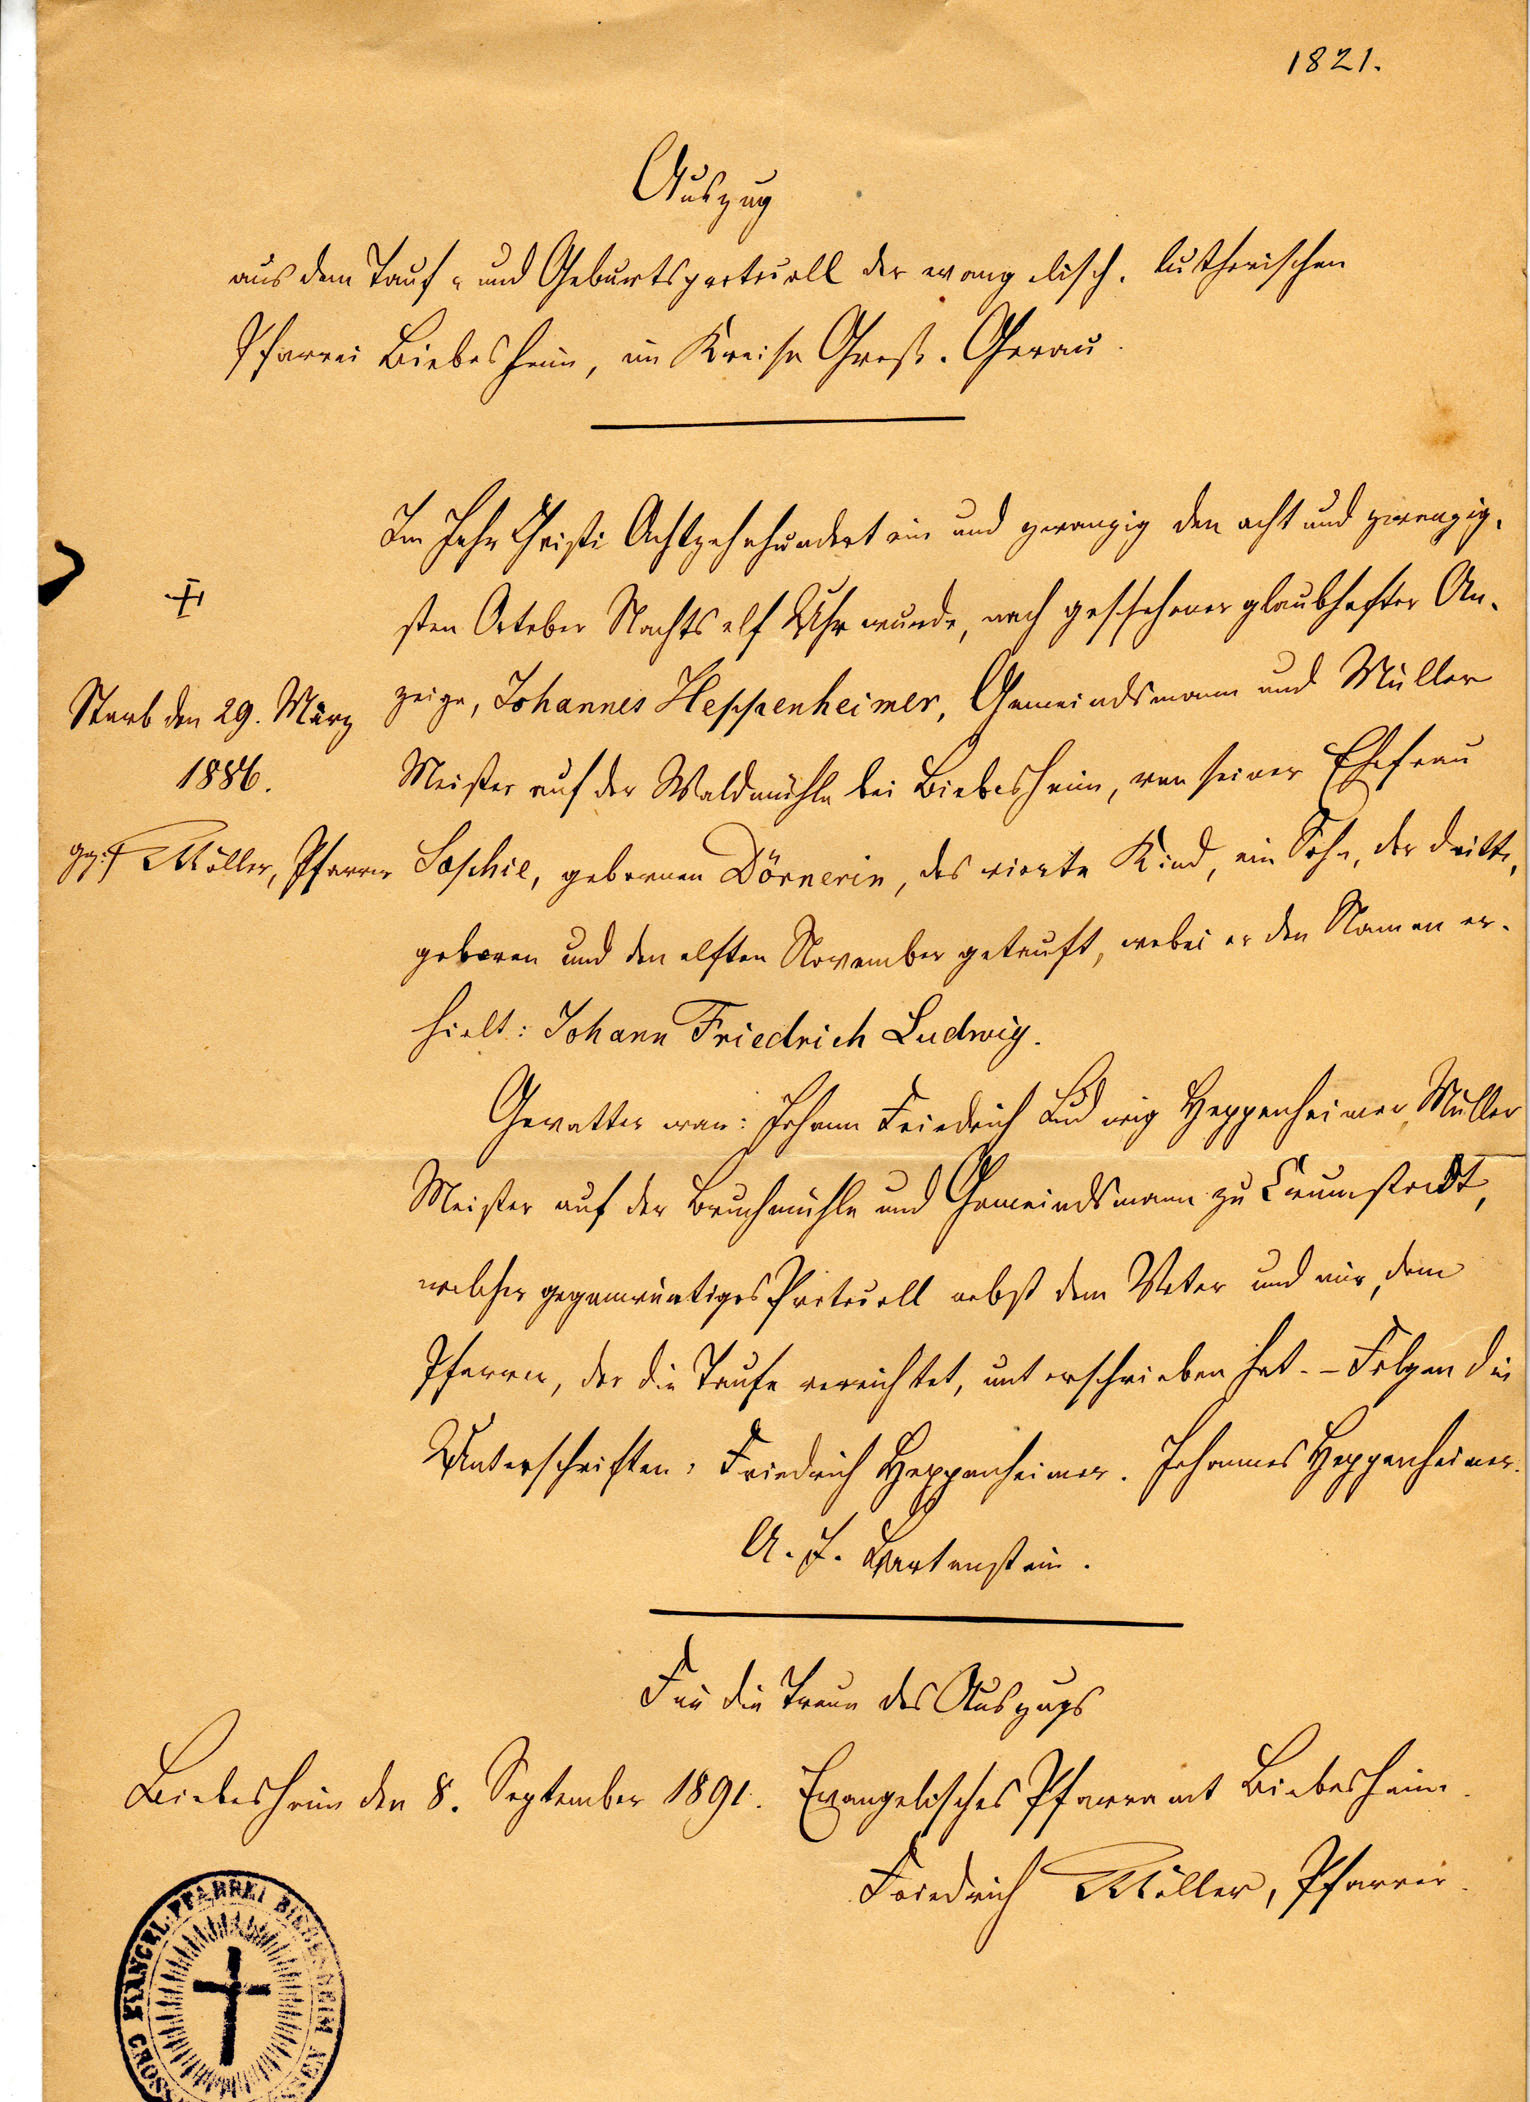 1821.
Auszug
aus dem Tauf- und Geburtsprotocoll der evangelisch-lutherischen
Pfarrei Biebesheim, im Kreise Groß-Gerau.
Im Jahr Christi Achtzehnhundert ein und zwanzig den acht und zwanzig-
sten October Nachts elf Uhr wurde, nach geschehener glaubhafter An-
zeige, Johannes Heppenheimer, Gemeindsmann und Müller
Starb den 29. März
1886.
gez: Müller, Pfarrer
Meister auf der Waldmühle bei Biebesheim, von seiner Ehefrau
Sophie, gebornen Dörnerin, das vierte Kind, ein Sohn, der dritte,
geboren und den elften November getauft, wobei er den Namen er-
hielt: Johann Friedrich Ludwig.
Gevatter war: Johann Friedrich Ludwig Heppenheimer, Müller
Meister auf der Bruchmühle und Gemeindsmann zu Crumstadt,
welcher gegenwärtiges Protocoll nebst dem Vater und mir, dem
Pfarrer, der die Taufe verrichtet, unterschrieben hat. – Folgen die
Unterschriften: Friedrich Heppenheimer. Johannes Heppenheimer.
Bartenstein.
Für die Treue des Auszugs
Biebesheim den 8. September 1891. Evangelisches Pfarramt Biebesheim.
Friedrich Müller, Pfarrer.
EVANGEL. PFARREI BIEBESHEIM